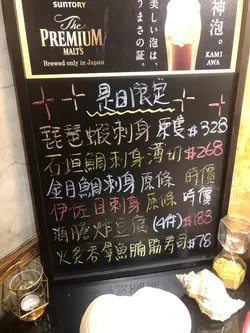 SUNTORY
The
PREMIUM
MALT'S
Brewed only in Japan
美しい泡は、
うまさの証。
神泡。
KAMI
AWA
是日限定
琵琶蝦刺身 原隻 $328
石垣鯛刺身 薄切 $268
金目鯛刺身 原條 時價
伊佐目刺身 原條 時價
炸豆腐 (4件) $188
火炙吞拿魚腩筋壽司 $78